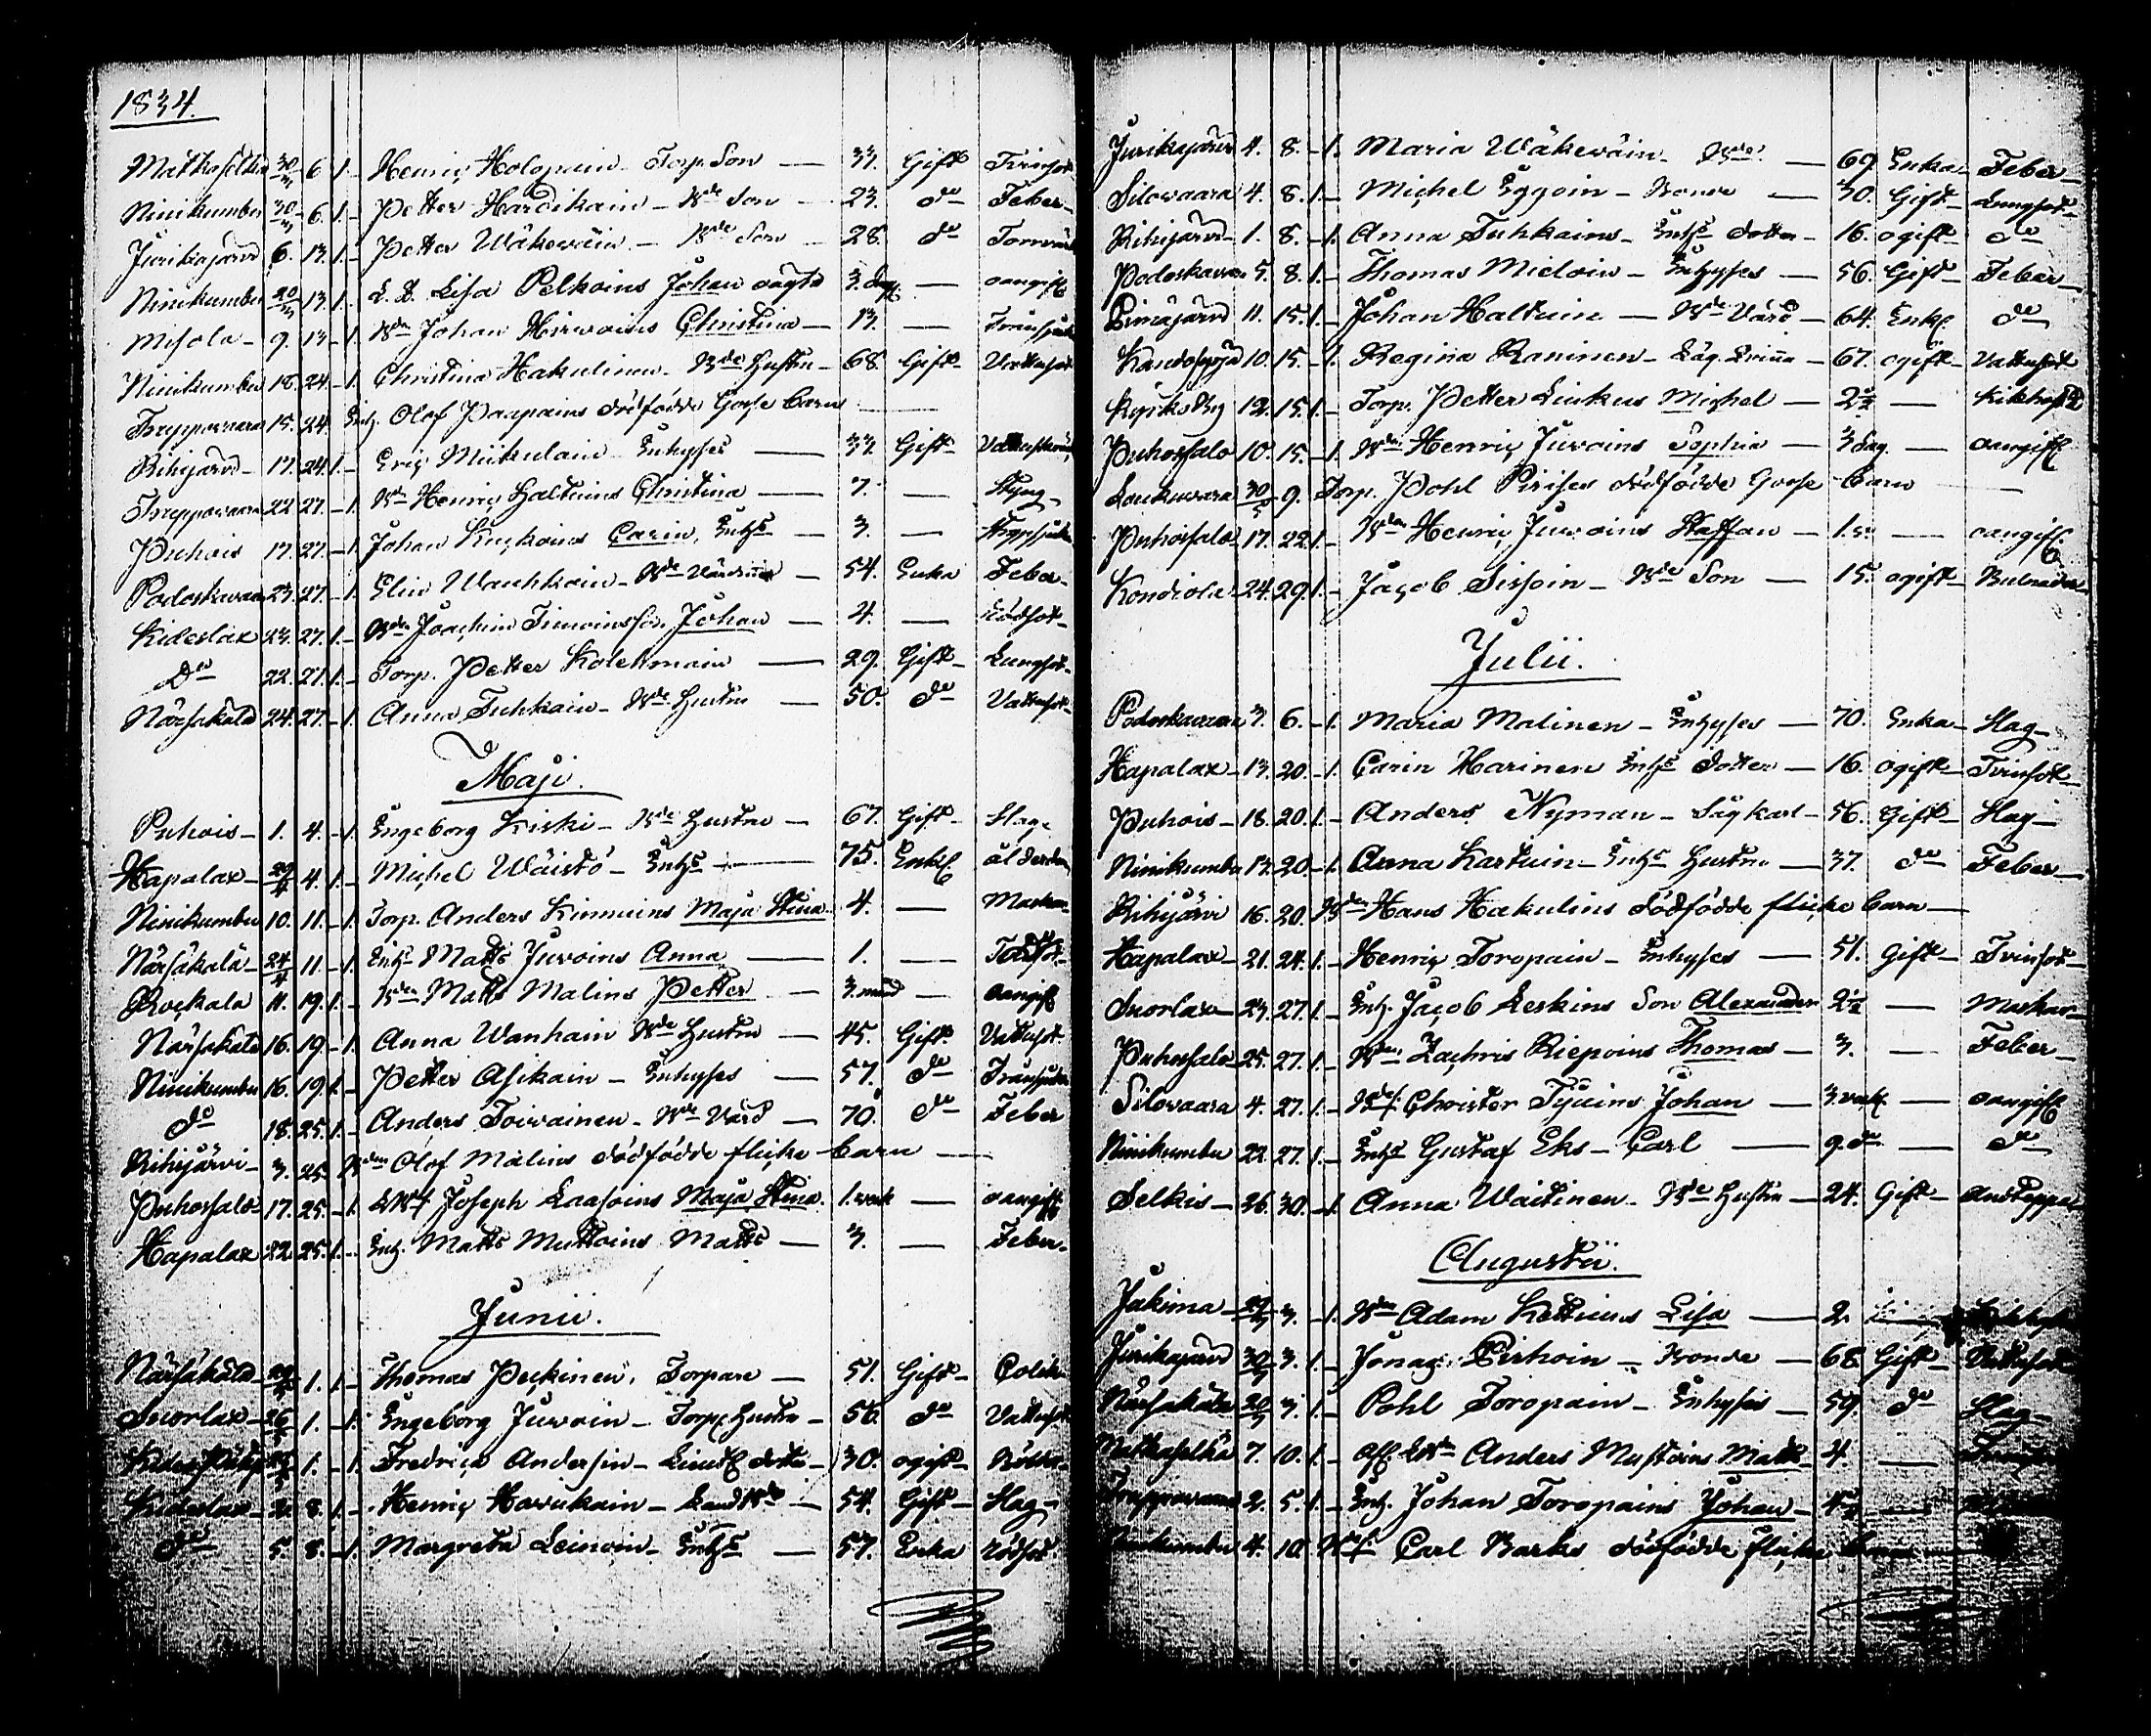 1834.
Matkaselkä 30/3 6. 1. – Henric Holopain Torp. Son — 33. Gift Tvinsot
Niinikumbu 30/3 6. 1. – Petter Hardikain – Bde Son — 23. do Feber
Juurikajärvi 6. 13. 1. – Petter Wäkeväin – Bde Son — 28. do
Niinikumbu 20/3 13. 1. – L. D. Lisa Pelkoins Johan 3. dag — oangifl
Misola – 9. 13. – 1. Bdn Johan Hirwoins Christina — 13. —
Niinikumbu 18. 24. – 1. Christina Hakulinen Bde Hustru – 68. Gift Vattusot
15. 24. Inh. Olof Paapains dödfödde Gosse barn
Riihijärvi – 17. 24. 1. – Eric Miikulain Inhyses — 33. Gift
22. 27. – 1. Bdn Henric Haltuins Christina — 7. — Slag
Puhois 17. 27. – 1. Johan Kuckoins Carin, Inhs — 3. —
Podoskavaara 23. 27. – 1. Elin Wauhkoin – Bde Värdinna — 54. Enka Feber
Kideslax 23. 27. 1. – Bdn Joachim Timoins Son Johan — 4. — Rödsot
Do 22. 27. 1. – Torp. Petter Kolehmain — 29. Gift Lungsot
Närsäkälä 24. 27. – 1. Anna Tuhkain – Bde Hustru — 50. do Vattusot
Maji.
Puhois – 1. 4. – 1. Engeborg Kiiski – Bde Hustru — 67. Gift Slag
Hapalax – 29/4 4. 1. – Michel Wäistö – Inhs — 75. Enkl ålderdom
Niinikumbu 10. 11. – 1. Torp. Anders Kinnuins Maja Stina 4. —
Närsäkälä – 24/4 11. – 1. Inhs Matts Juvoins Anna — 1. —
Rockala 11. 19. 1. – Bdn Matts Malins Petter — 3. mån — oangifl
Närsäkälä 16. 19. – 1. Anna Wanhain Bde Hustru — 45. Gift Vattusot
Niinikumbu 16. 19. 1. – Petter Asikain – Inhyses — 57. do
do 18. 25. 1. – Anders Toivainen – Bde Värd — 70. do Feber
Riihijärvi – 3. 25. Bdn Olof Malins dödfödde flicke barn —
Puhossalo 17. 25. – 1. Joseph Laasoins Maja Stina 1. veck — oangifl
Hapalax 22. 25. 1. – Inh. Matts Muttoins Matts — 3. — Feber
Junii.
Närsäkälä – 29/5 1. 1. – Thomas Peckinen, Torpare — 51. Gift Colik
Suorlax – 26/5 1. – 1. Engeborg Juvoin – Torp. Hustru – 56. do Vattusot
1. – 1. Fredrica Andersin – Lieut. dotter – 30. ogift
Kideslax – 2. 8. 1. – Henric Havukain – Land Bde — 54. Gift Slag
do 5. 8. – 1. Margreta Leinoin – Inhs — 57. Enka rödsot
Juurikajärvi 4. 8. – 1. Maria Wäkeväin – Bde — 69. Enka Feber
Silovaara 4. 8. 1. – Michel Eggoin – Bonde — 30. Gift Lungsot
Riihijärvi 1. 8. – 1. Anna Tuhkains – Inhs dotter – 16. ogift do
Podoskavaara 5. 8. 1. – Thomas Mieloin – Inhyses — 56. Gift Feber
11. 15. 1. – Johan Haltuin — Bde Värd – 64. Enkl do
10. 15. – 1. Regina Raninen – — 67. ogift Vattusot
12. 15. 1. – Torp. Petter Liukus Michel — 2½ — Kikhosta
Puhossalo 10. 15. – 1. Bdn Henric Juvoins Sophia — 3 dag — oangifl
Loukuvaara 30/5 9. Torp. Pohl Pirises dödfödde Gosse barn —
Puhossalo 17. 22. 1. – Bdn Henric Juvoins Staffan — 1. — oangifl
Kondiola 24. 29. 1. – Jacob Sissoin – Bde Son — 15. ogift
Julii.
Podoskavaara 3. 6. – 1. Maria Malinen – Inhyses — 70. Enka Slag
Hapalax – 13. 20. – 1. Carin Harinen Inhs dotter — 16. ogift Tvinsot
Puhois – 18. 20. 1. – Anders Nyman – Sågkarl – 56. Gift Slag
Niinikumbu 13. 20. – 1. Anna Kartuin – Inhs Hustru — 37. do Feber
Riihijärvi 16. 20. Bdn Hans Hakulins dödfödde flicke barn —
Hapalax – 21. 24. 1. – Henric Toropain – Inhyses — 51. Gift Tvinsot
Suorlax – 23. 27. 1. – Inh. Jacob Leskins Son Alexander 2½ —
Puhossalo 25. 27. 1. – Bdn Zachris Riepoins Thomas — 3. — Feber
Silovaara 4. 27. 1. – Christer Tyuins Johan — 3. veck — oangifl
Niinikumbu 22. 27. 1. – Inhs Gustaf Eks – Carl — 9. do — do
Selkis – 26. 30. – 1. Anna Waitinen – Bde Hustru – 24. Gift
Augustii.
Jakima – 29/7 3. – 1. Bdn Adam Kettuins Lisa — 2.
Juurikajärvi 30/7 3. 1. – Jonas Pirhoin – Bonde — 68. Gift Vattusot
Närsäkälä 30/7 3. 1. – Pohl Toropain – Inhyses — 59. do Slag
Matkaselkä 7. 10. 1. – Anders Mustoins Matts 4. —
2. 5. 1. – Inh. Johan Toropains Johan –
Niinikumbu 4. 10. Carl Barks dödfödde flicke barn